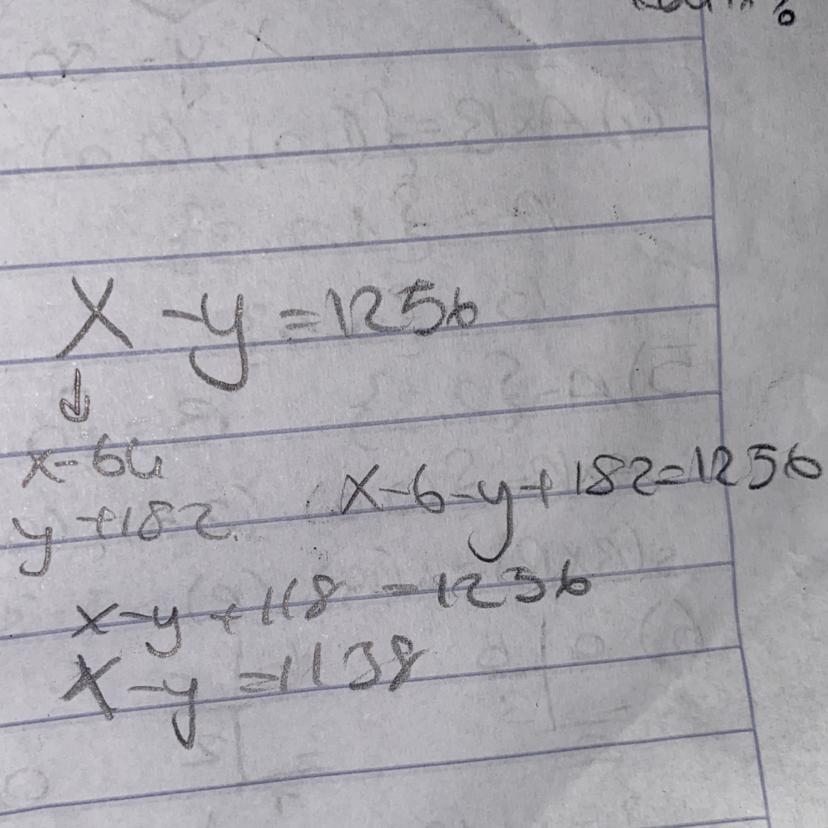 x - y = 1256
↓
x - 64
y + 182. x - 6 - y + 182 = 1256
x - y + 118 = 1236
x - y = 1138